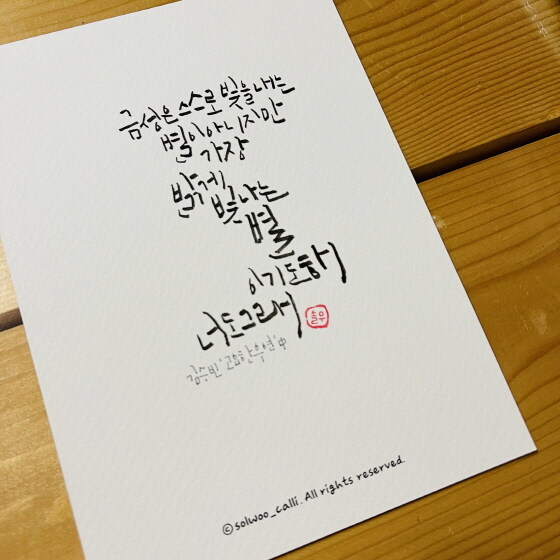 금성은 스스로 빛을 내는
별이 아니지만
가장
밝게 빛나는
별
이기도 해
너도 그래
솔우
김수빈 '고요한 우연' 中
ⓒ solwoo_calli. All rights reserved.